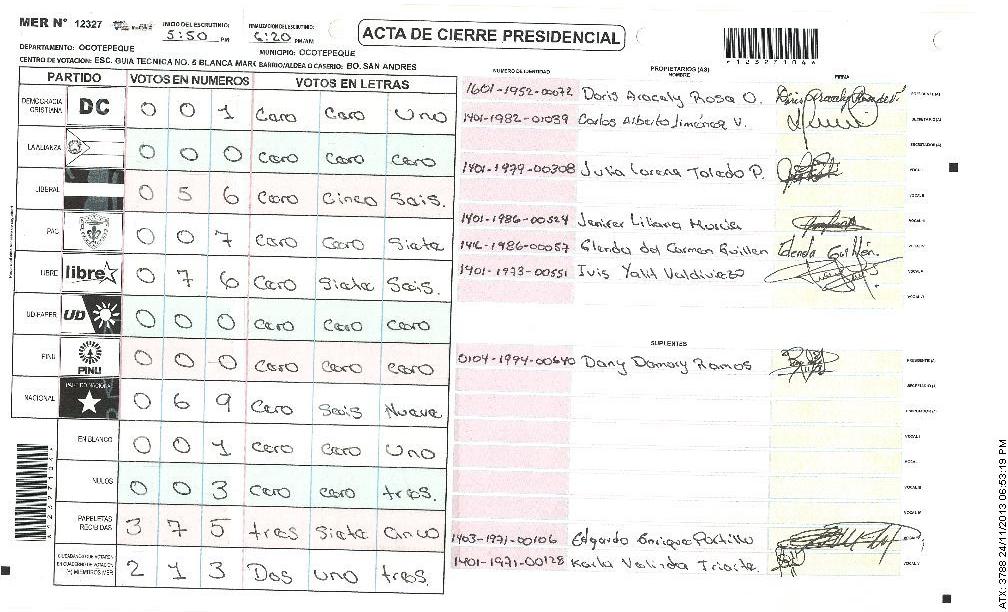 MER N° 12327
INICIO DEL ESCRUTINIO:
5:50 PM
FINALIZACION DEL ESCRUTINIO:
6:20 PM/AM
ACTA DE CIERRE PRESIDENCIAL
DEPARTAMENTO: OCOTEPEQUE
MUNICIPIO: OCOTEPEQUE
CENTRO DE VOTACION: ESC. GUIA TECNICA NO. 5 BLANCA MARI BARRIO/ALDEA O CASERIO: BO. SAN ANDRES
PARTIDO VOTOS EN NUMEROS VOTOS EN LETRAS
DEMOCRACIA CRISTIANA DC 0 0 1 Cero Cero Uno
LA ALIANZA 0 0 0 Cero Cero Cero
LIBERAL 0 5 6 Cero Cinco Seis.
PAC 0 0 7 Cero Cero Siete
LIBRE libre 0 7 6 Cero Siete Seis.
UD-FAPER UD 0 0 0 Cero Cero Cero
PINU PINU 0 0 0 Cero Cero Cero
NACIONAL PARTIDO NACIONAL 0 6 9 Cero Seis Nueve
EN BLANCO 0 0 1 Cero Cero Uno
NULOS 0 0 3 Cero Cero tres.
PAPELETAS RECIBIDAS 3 7 5 tres Siete Cinco
CIUDADANOS QUE VOTARON EN CUADERNO DE VOTACION (+) MIEMBROS MER 2 1 3 Dos uno tres.
NUMERO DE IDENTIDAD PROPIETARIOS (AS) NOMBRE FIRMA
1601-1952-00072 Doris Aracely Rosa O. PRESIDENTE(A)
1401-1982-01039 Carlos Alberto Jiménez V. SECRETARIO(A)
ESCRUTADOR (A)
1401-1979-00308 Julia Lorena Toledo P. VOCAL I
VOCAL II
1401-1986-00524 Jenifer Liliana Murcia VOCAL III
1416-1986-00057 Glenda del Carmen Guillen VOCAL IV
1401-1973-00551 Ivis Yalit Valdiviezo VOCAL V
VOCAL VI
SUPLENTES
0104-1994-00640 Dany Damary Ramos PRESIDENTE (A)
SECRETARIO (A)
ESCRUTADOR (A)
VOCAL I
VOCAL II
VOCAL III
VOCAL IV
1403-1971-00106 Edgardo Enrique Portillo
1401-1971-00128 Karla Velinda Triarte
*12327104*
ATX: 3788 24/11/2013 06:53:19 PM